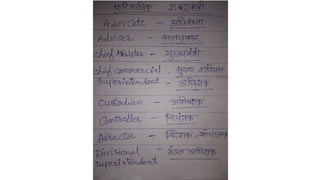 पारिभाषिक शब्दावली
Advocate - अधिवक्ता
Adviser - सलाहकार
chief Minister - मुख्यमंत्री
chief commercial - मुख्य वाणिज्य
Superintendent - अधीक्षक
Custodian - अभिरक्षक
Controller - नियंत्रक
Director - निदेशक, संचालक
Divisional - मंडल अधीक्षक
superintendent